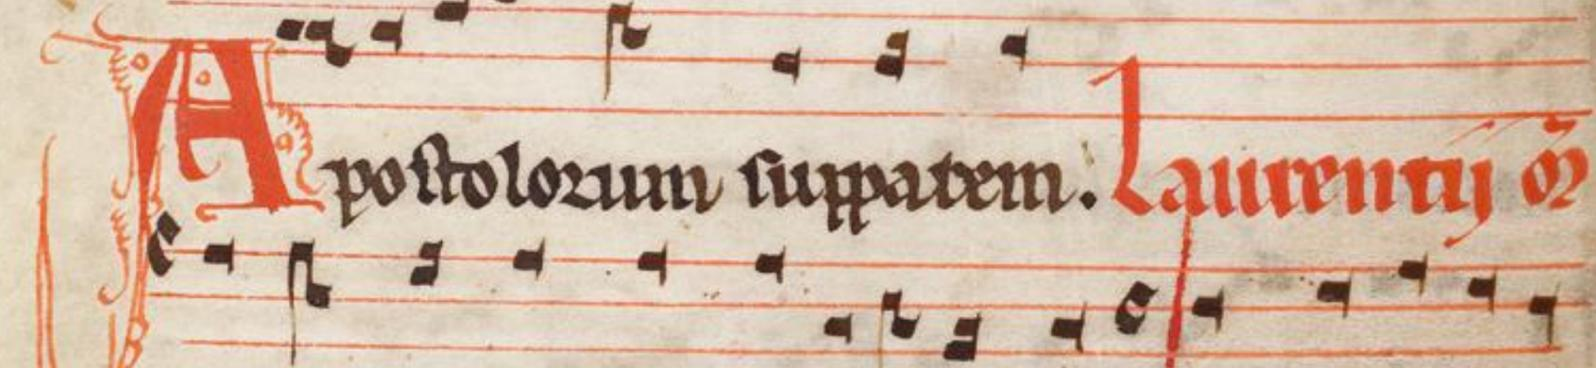 Apostolorum suppatem. Laurentij m̅